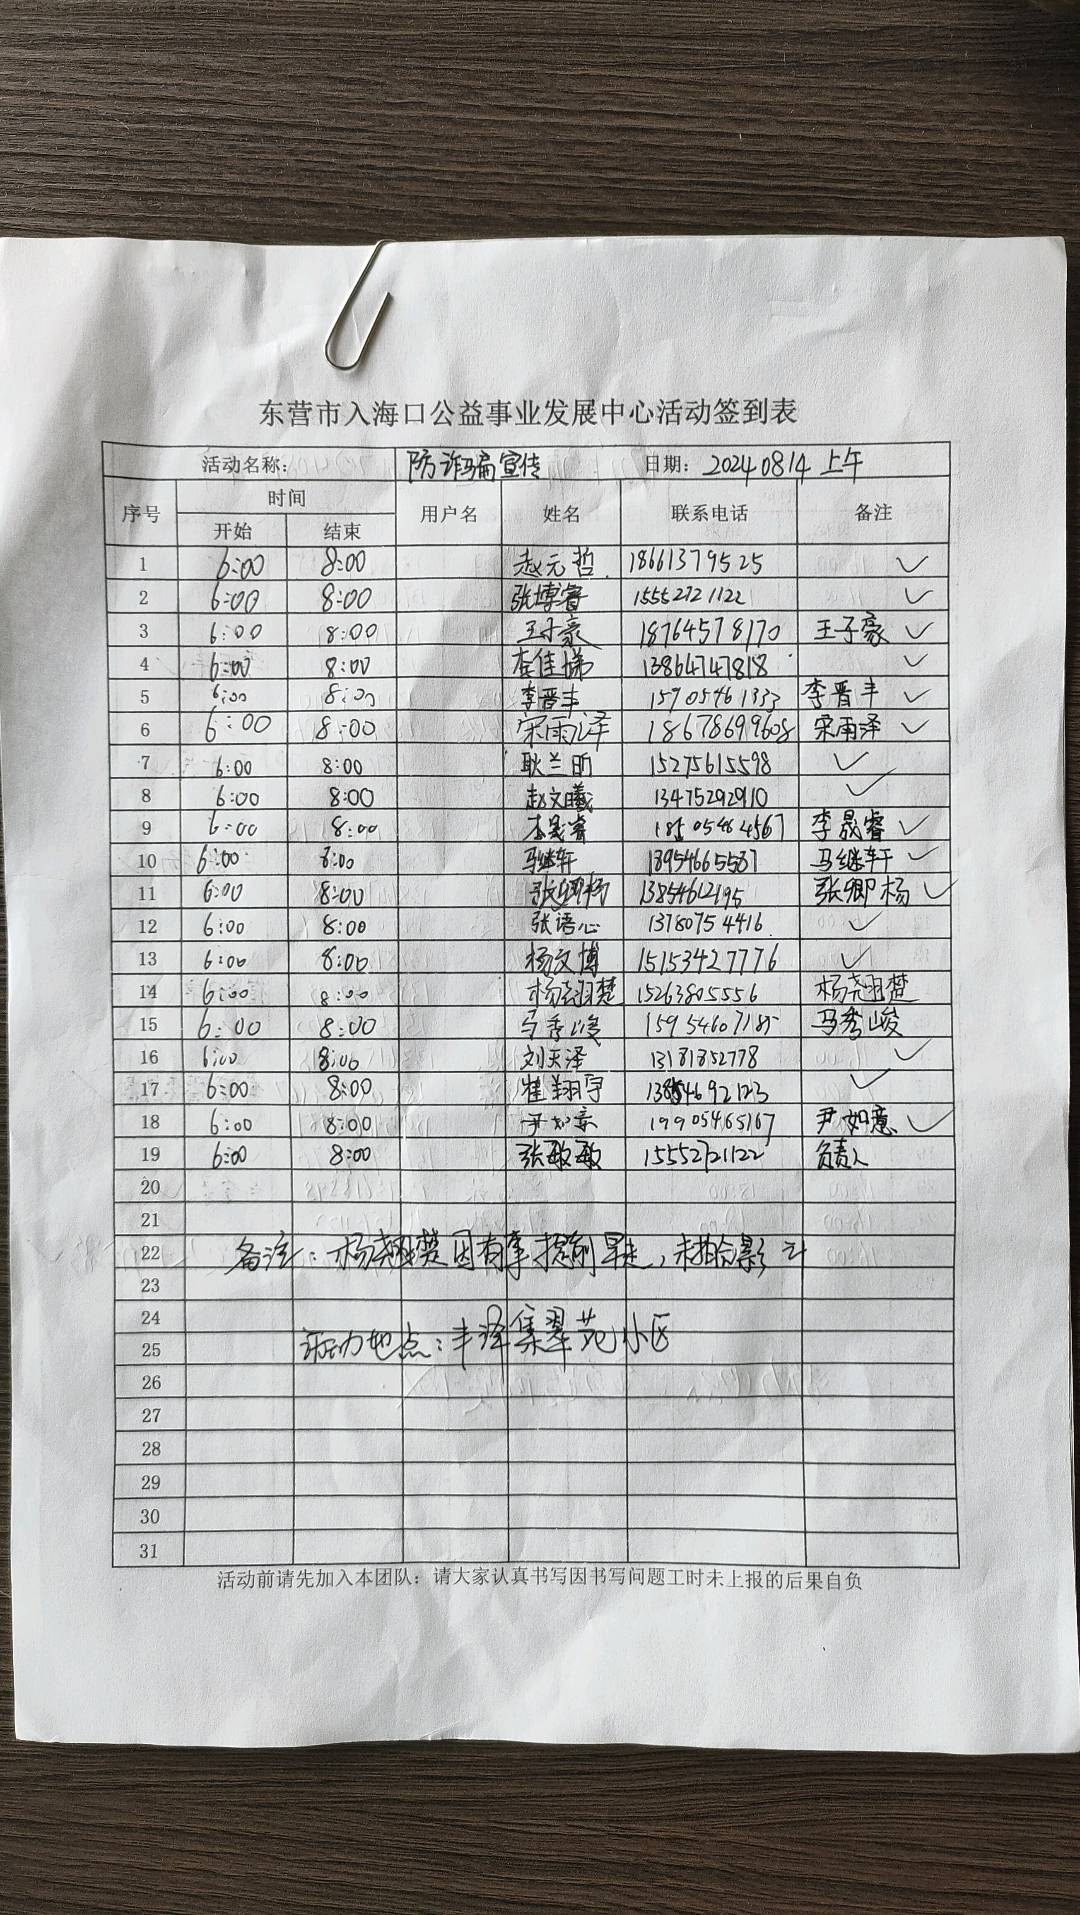 东营市入海口公益事业发展中心活动签到表
活动名称: 防诈骗宣传 日期: 20240814 上午
序号 时间 用户名 姓名 联系电话 备注
开始 结束
1 6:00 8:00 赵元哲 18661379525 ✓
2 6:00 8:00 张博睿 15552721122 ✓
3 6:00 8:00 王子豪 18764578170 王子豪 ✓
4 6:00 8:00 李佳娣 13864747818 ✓
5 6:00 8:00 李晋丰 15905461333 李晋丰 ✓
6 6:00 8:00 宋雨泽 18678699608 宋雨泽 ✓
7 6:00 8:00 耿兰昕 15275615598 ✓
8 6:00 8:00 赵文曦 13475292910 ✓
9 6:00 8:00 李晟睿 18505464567 李晟睿 ✓
10 6:00 8:00 马继轩 18954665587 马继轩 ✓
11 6:00 8:00 张卿杨 13854612195 张卿杨 ✓
12 6:00 8:00 张语心 13780754416 ✓
13 6:00 8:00 杨文博 15153427776 ✓
14 6:00 8:00 杨尧翔楚 15263805556 杨尧翔楚
15 6:00 8:00 马秀峻 马秀峻
16 6:00 8:00 刘天泽 13181852778 ✓
17 6:00 8:00 崔翔宇 13854692123 ✓
18 6:00 8:00 尹如意 19905465167 尹如意 ✓
19 6:00 8:00 张敏敏 15552721122 负责人
20
21
22 备注: 杨尧翔楚因有事提前早走,未拍合影
23
24
25 活动地点: 丰泽集翠苑小区
26
27
28
29
30
31
活动前请先加入本团队: 请大家认真书写因书写问题工时未上报的后果自负